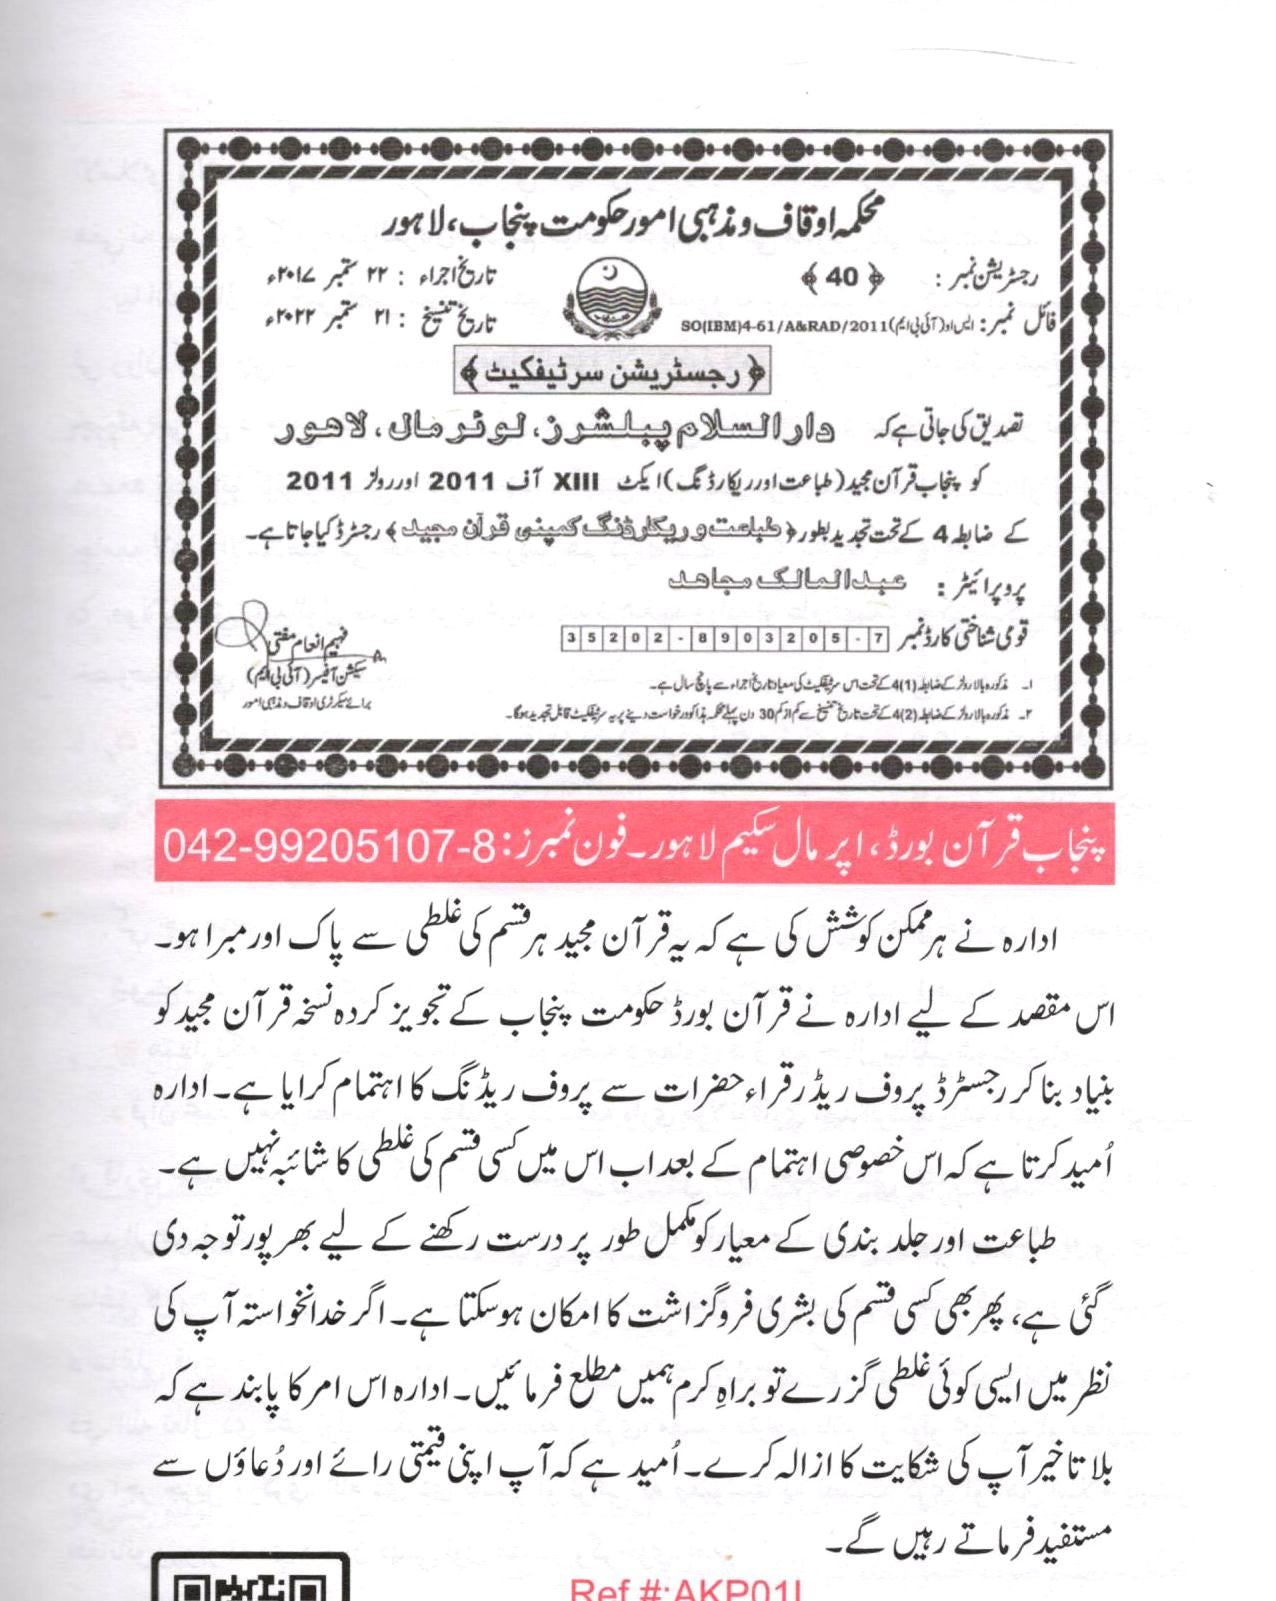 محکمہ اوقاف و مذہبی امور حکومت پنجاب، لاہور
رجسٹریشن نمبر : ﴿ 40 ﴾ تاریخ اجراء : ۲۲ ستمبر ۲۰۱۷ء
فائل نمبر : ایس او(آئی بی ایم)SO(IBM)4-61/A&RAD/2011 تاریخ تنسیخ : ۲۱ ستمبر ۲۰۲۲ء
﴿ رجسٹریشن سرٹیفکیٹ ﴾
تصدیق کی جاتی ہے کہ دارالسلام پبلشرز، لوئر مال، لاہور
کو پنجاب قرآن مجید (طباعت اور ریکارڈنگ) ایکٹ XIII آف 2011 اور رولز 2011
کے ضابطہ 4 کے تحت تجدید بطور ﴿ طباعت و ریکارڈنگ کمپنی قرآن مجید ﴾ رجسٹرڈ کیا جاتا ہے۔
پروپرائیٹر : عبدالمالک مجاہد
قومی شناختی کارڈ نمبر 35202-8903205-7
فہیم انعام مفتی
سیکشن آفیسر (آئی بی ایم)
برائے سیکرٹری اوقاف و مذہبی امور
۱۔ مذکورہ بالا رولز کے ضابطہ (1)4 کے تحت اس سرٹیفکیٹ کی معیاد تاریخ اجراء سے پانچ سال ہے۔
۲۔ مذکورہ بالا رولز کے ضابطہ (2)4 کے تحت تاریخ تنسیخ سے کم از کم 30 دن پہلے محکمہ ہذا کو درخواست دینے پر یہ سرٹیفکیٹ قابل تجدید ہوگا۔
پنجاب قرآن بورڈ، اپر مال سکیم لاہور۔ فون نمبرز: 042-99205107-8
ادارہ نے ہر ممکن کوشش کی ہے کہ یہ قرآن مجید ہر قسم کی غلطی سے پاک اور مبرا ہو۔
اس مقصد کے لیے ادارہ نے قرآن بورڈ حکومت پنجاب کے تجویز کردہ نسخہ قرآن مجید کو
بنیاد بنا کر رجسٹرڈ پروف ریڈر قراء حضرات سے پروف ریڈنگ کا اہتمام کرایا ہے۔ ادارہ
اُمید کرتا ہے کہ اس خصوصی اہتمام کے بعد اب اس میں کسی قسم کی غلطی کا شائبہ نہیں ہے۔
طباعت اور جلد بندی کے معیار کو مکمل طور پر درست رکھنے کے لیے بھرپور توجہ دی
گئی ہے، پھر بھی کسی قسم کی بشری فروگزاشت کا امکان ہوسکتا ہے۔ اگر خدانخواستہ آپ کی
نظر میں ایسی کوئی غلطی گزرے تو براہِ کرم ہمیں مطلع فرمائیں۔ ادارہ اس امر کا پابند ہے کہ
بلا تاخیر آپ کی شکایت کا ازالہ کرے۔ اُمید ہے کہ آپ اپنی قیمتی رائے اور دُعاؤں سے
مستفید فرماتے رہیں گے۔
Ref #:AKP01L